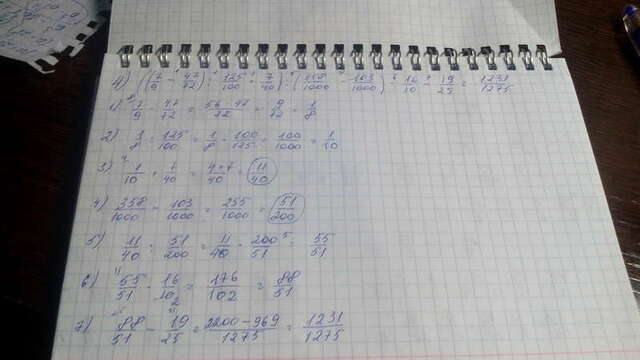 4) ((7/9 - 47/72) : 125/100 + 7/40) : (358/1000 - 103/1000) · 16/10 - 19/25 = 1231/1275
1) 7/9 - 47/72 = 56-47/72 = 9/72 = 1/8
2) 1/8 : 125/100 = 1/8 · 100/125 = 100/1000 = 1/10
3) 1/10 + 7/40 = 4+7/40 = 11/40
4) 358/1000 - 103/1000 = 255/1000 = 51/200
5) 11/40 : 51/200 = 11/40 · 200/51 = 55/51
6) 55/51 · 16/10 = 176/102 = 88/51
7) 88/51 - 19/25 = 2200-969/1275 = 1231/1275